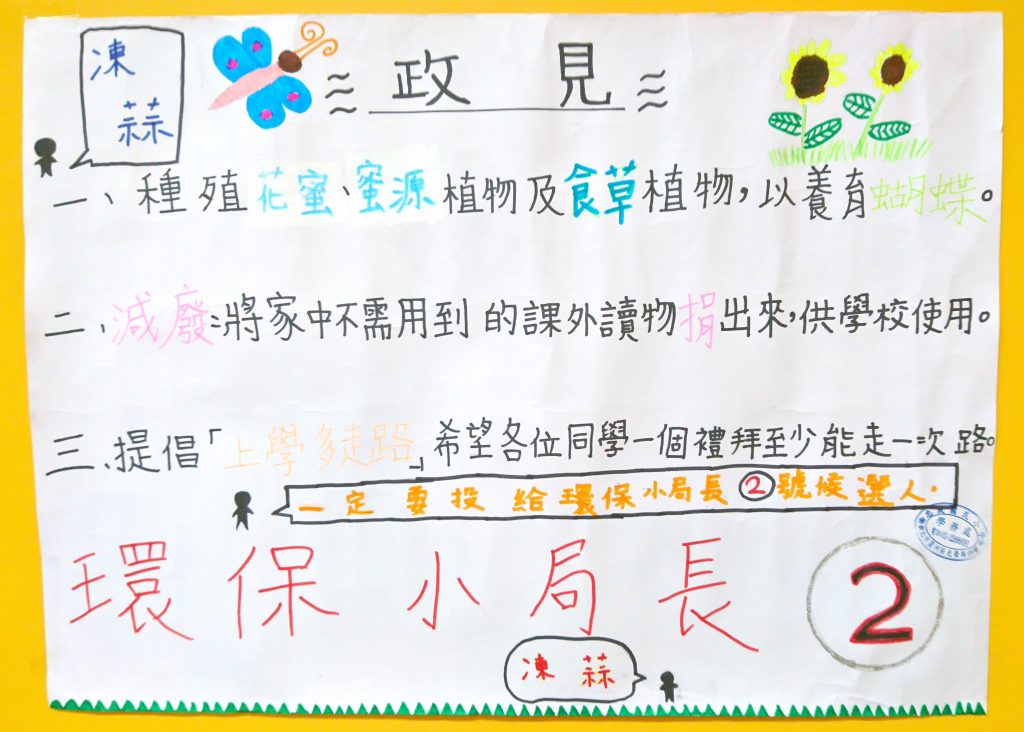 凍蒜
政見
一、種殖花蜜、蜜源植物及食草植物，以養育蝴蝶。
二、減廢：將家中不需用到的課外讀物捐出來，供學校使用。
三、提倡「上學多走路」希望各位同學一個禮拜至少能走一次路。
一定要投給環保小局長②號候選人.
學務處
環保小局長 2
凍蒜